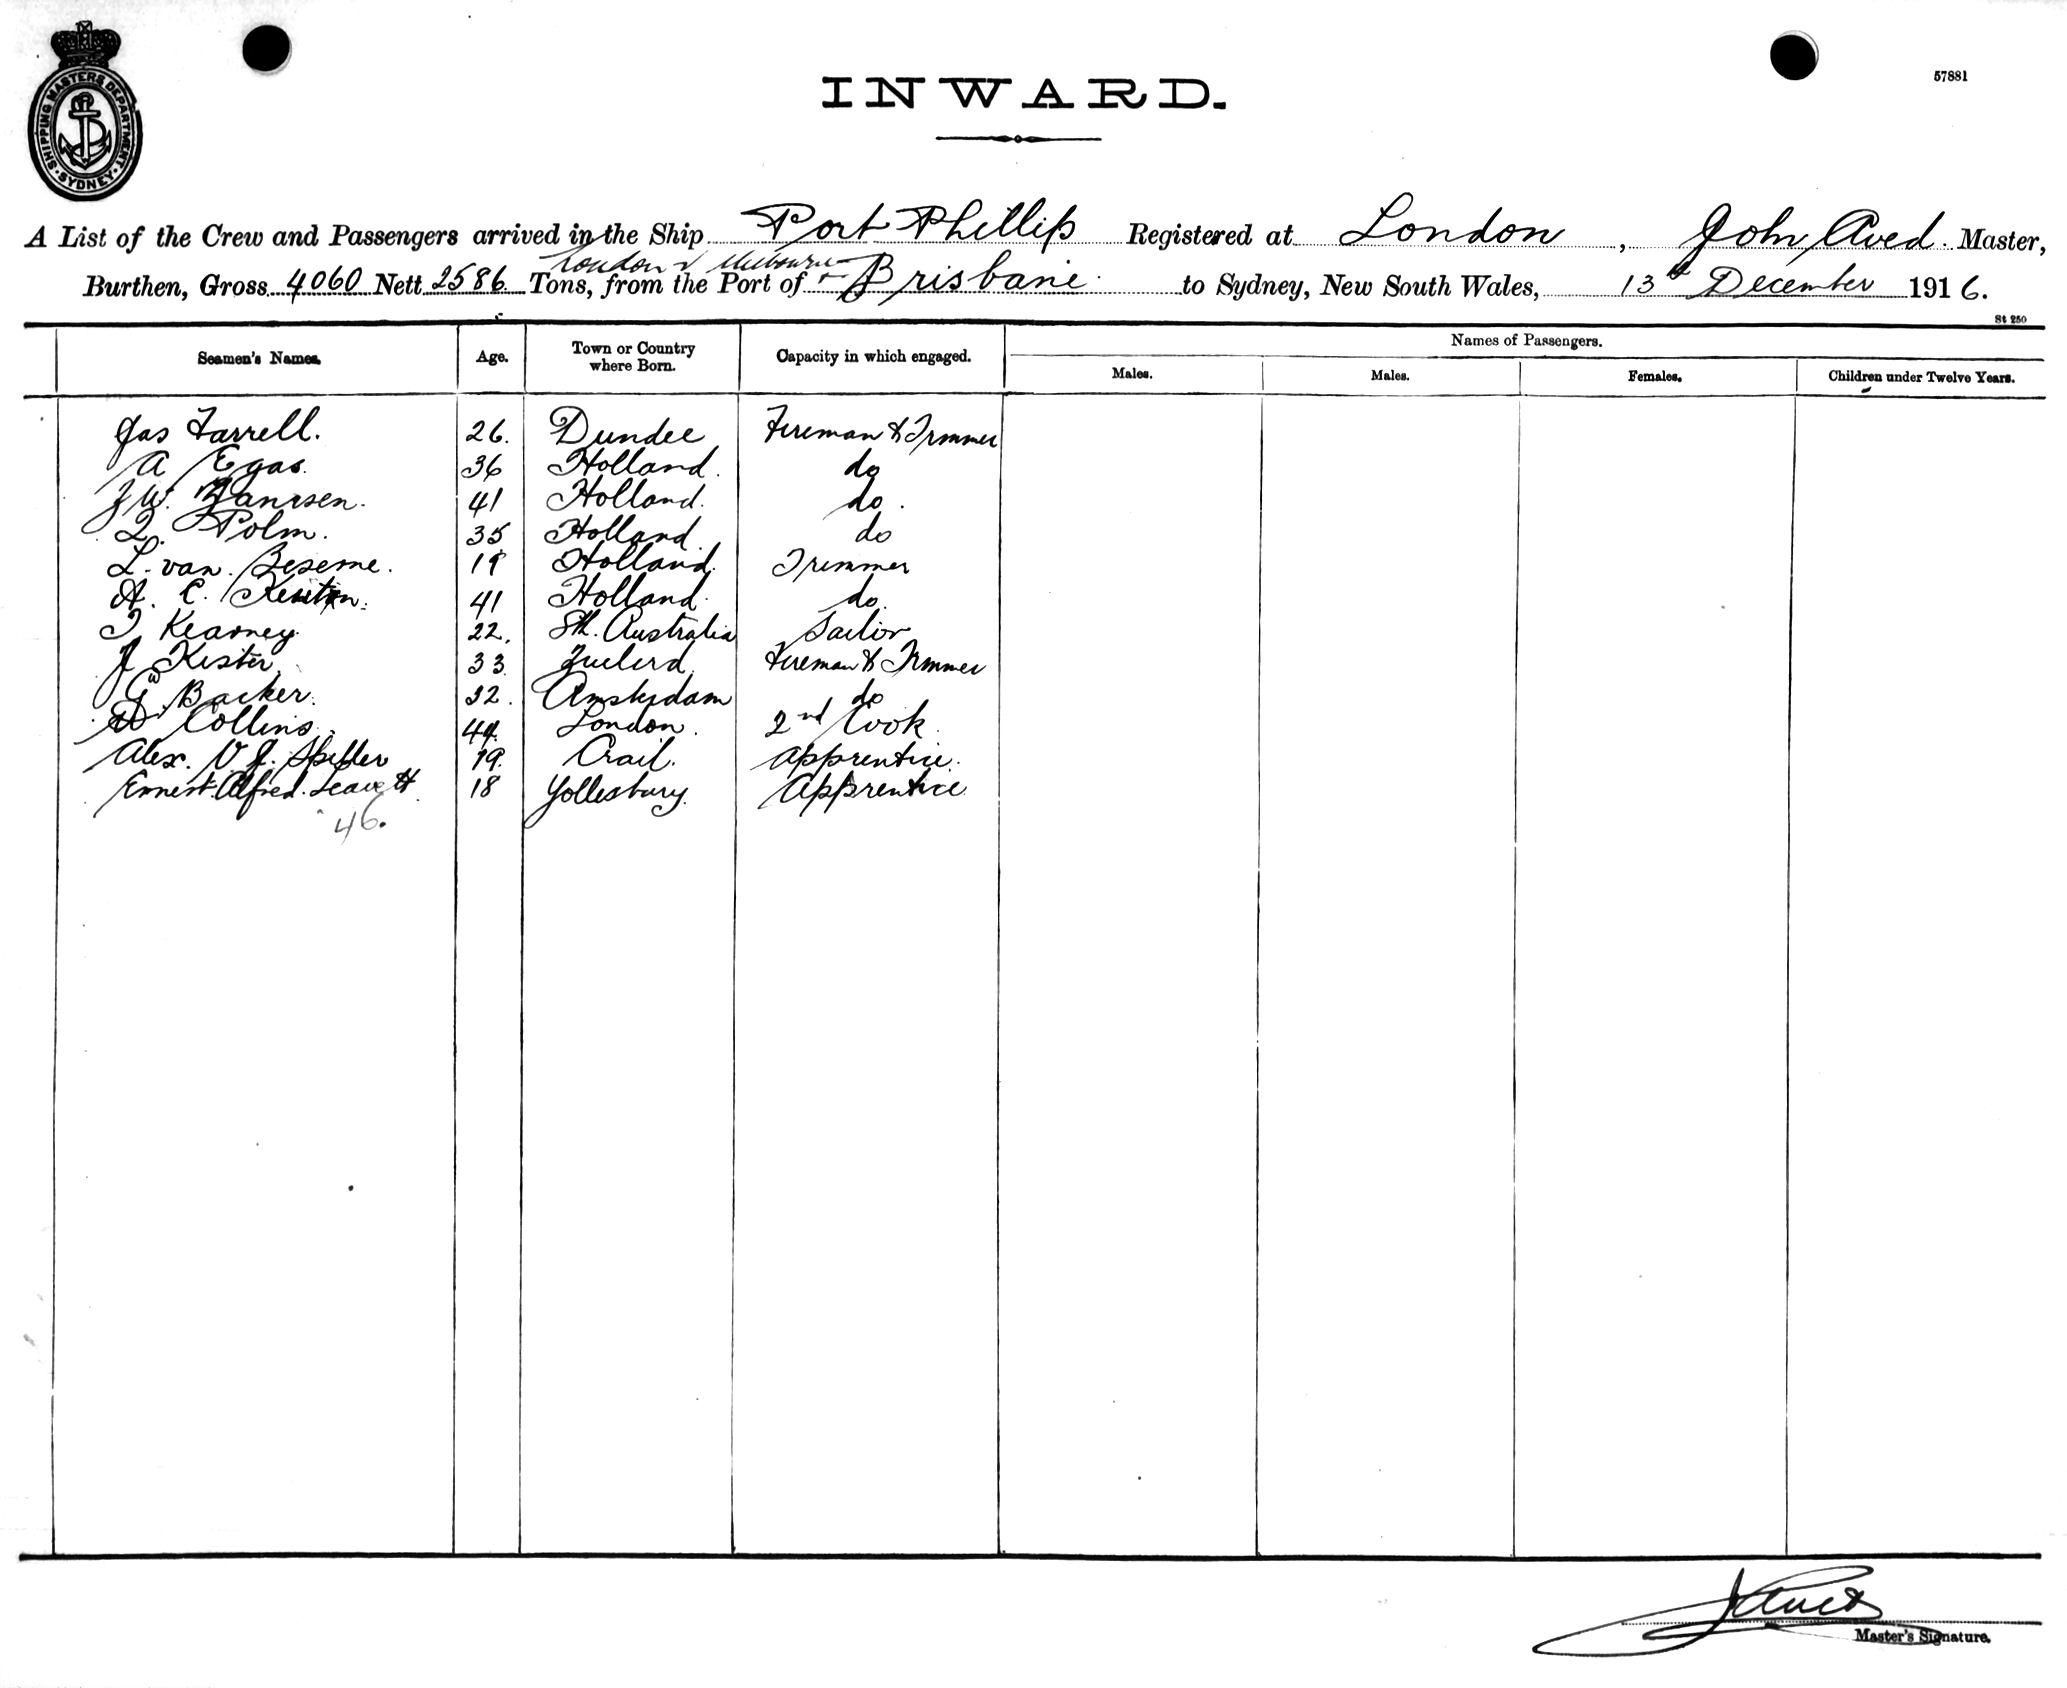 SHIPPING MASTERS DEPARTMENT
SYDNEY
57881
INWARD.
A List of the Crew and Passengers arrived in the Ship Port Phillip Registered at London, John Aved Master,
London & Melbourne
Burthen, Gross 4060 Nett 2586 Tons, from the Port of Brisbane to Sydney, New South Wales, 13th December 1916.
St 250
Seamen's Names. Age. Town or Country where Born. Capacity in which engaged. Names of Passengers.
Males. Males. Females. Children under Twelve Years.
Jas Farrell. 26. Dundee Fireman & Trimmer
A Egas. 36 Holland. do
J W. Janrsen. 41 Holland. do.
Polm. 35 Holland do
L. van. Beseme. 19 Holland. Trimmer
A. C. 41 Holland. do.
T Kearney 22. Sth. Australia Sailor
J Kister. 33. Fireman & Trimmer
G Backer. 32. Amsterdam do
Collins. 44. London. 2nd Cook
Alex. V J. Spiller 19. Crail. Apprentice.
Ernest. Alfred. Leavett 18 Tollesbury. Apprentice.
46.
Master's Signature.